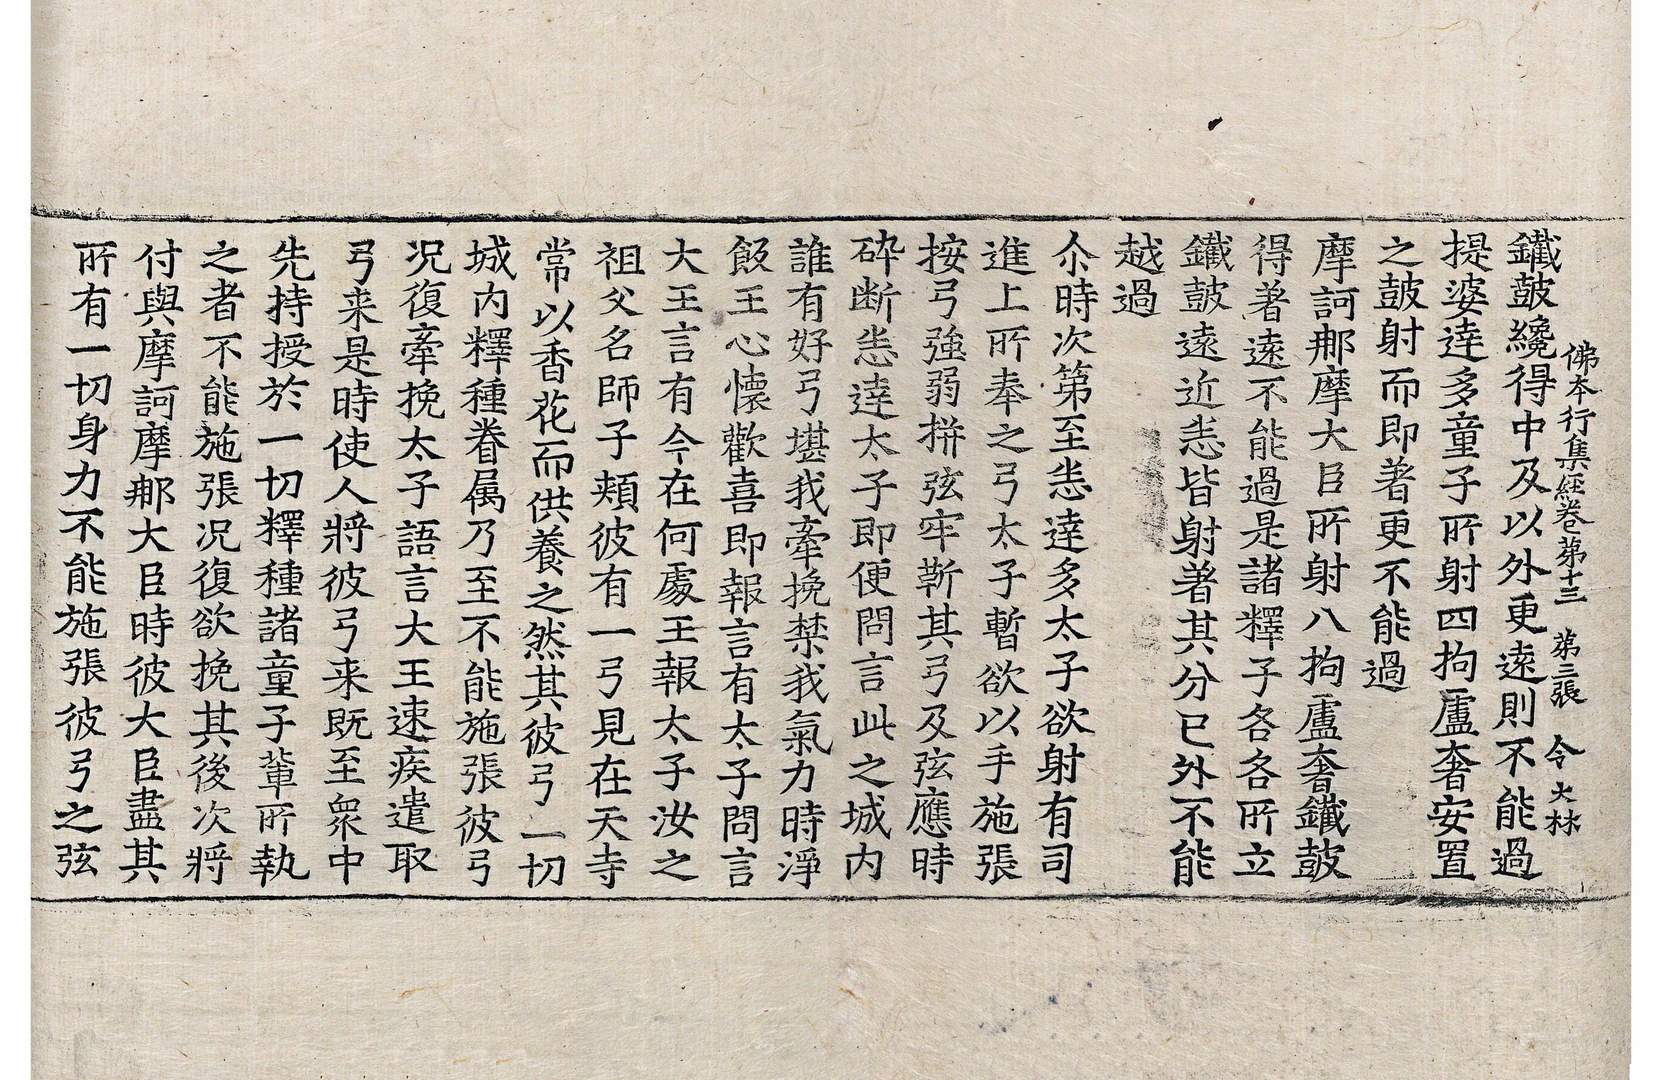 佛夲行集経卷苐十三　苐三張　令　大林
鐵鼓纔得中及以外更遠則不能過
提婆達多童子所射四拘盧奢安置
之鼓射而即著更不能過
摩訶那摩大臣所射八拘盧奢鐵鼓
得著遠不能過是諸釋子各各所立
鐵鼓遠近悉皆射著其分已外不能
越過
尒時次第至悉達多太子欲射有司
進上所奉之弓太子暫欲以手施張
按弓強弱拼弦牢靳其弓及弦應時
碎断悉達太子即便問言此之城内
誰有好弓堪我牽挽禁我氣力時淨
飯王心懷歡喜即報言有太子問言
大王言有今在何處王報太子汝之
祖父名師子頰彼有一弓見在天寺
常以香花而供養之然其彼弓一切
城内釋種眷属乃至不能施張彼弓
况復牽挽太子語言大王速疾遣取
弓来是時使人將彼弓来既至衆中
先持授於一切釋種諸童子輩所執
之者不能施張况復欲挽其後次將
付與摩訶摩那大臣時彼大臣盡其
所有一切身力不能施張彼弓之弦